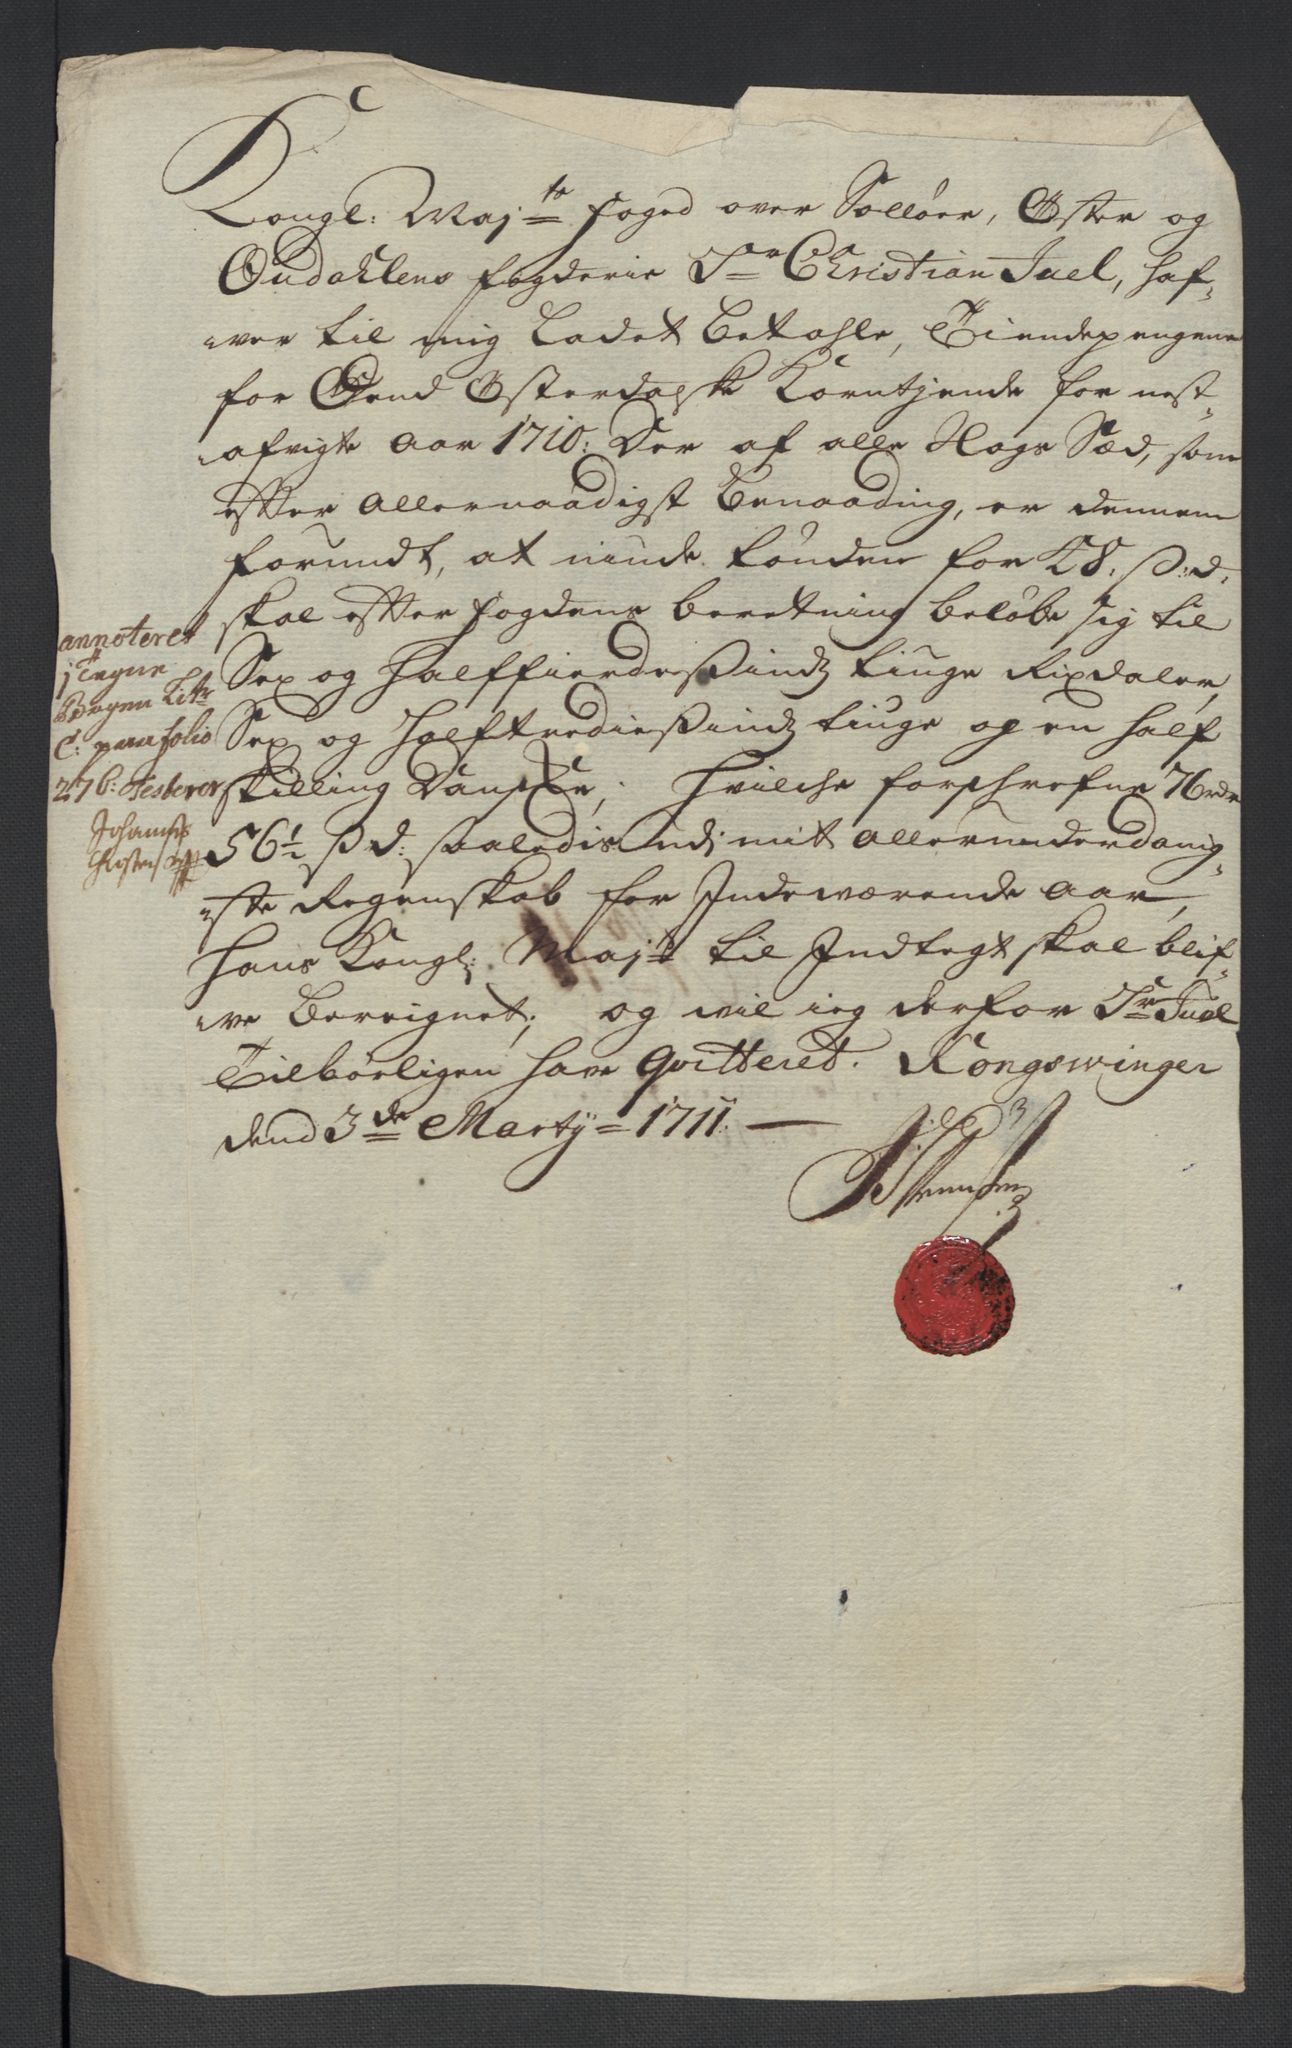 Kongl: Maj:ts foged over Solløer, Øster og
Oudahlens fogderie Sr Christian Juel, haf-
wer til mig ladet betahle, Tiendepengene
for Øster og Østerdalske Korntjende for nest-
afvigte aar 1710: Der af alle slags Sæd, som
efter allernaadigst benaading, er dennem
forundt, at niude tønden for 28. ß: d.
skal efter fogdens beretning beløbe sig til
Sex og halffierdesindztiuge Rixdaler,
Sex og halftrediesindztiuge og en half
skilling Danske; hvilche forschrefne 76 rdr
56½ ß d: saaledis udj mit allerunderdanig-
ste Regenskab for Indewærende aar,
hans Kongl: Maj:ts til Indtegt skal blif-
we bereignet; og wil ieg derfor Sr Juel
Tilbørligen have qvitteret. Kongswinger
dend 3de Martij 1711.
annoteret
j Tegne
Bogen Litr
C: paa folio
276: Testerer
Johannes